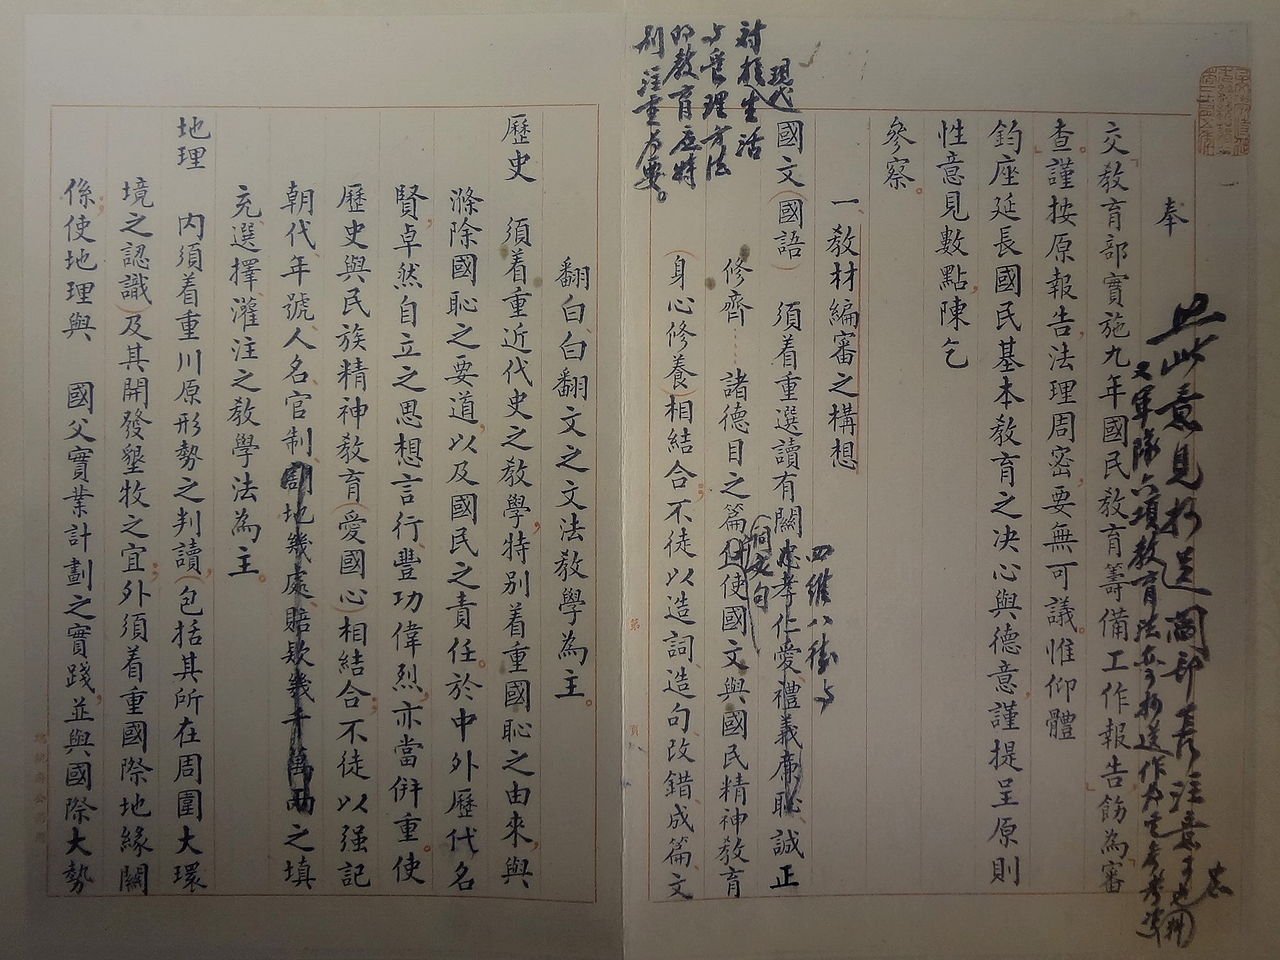 奉
交「教育部實施九年國民教育籌備工作報告」飭為審
查。謹按原報告,法理周密,要無可議。惟仰體
鈞座延長國民基本教育之決心與德意,謹提呈原則
性意見數點,陳乞
參察。
一、教材編審之構想
國文(國語) 須着重選讀有關忠孝仁愛、禮義廉恥、誠正
修齊……諸德目之篇什,使國文與國民精神教育
(身心修養)相結合;不徒以造詞造句、改錯成篇、文
翻白、白翻文之文法教學為主。
歷史 須着重近代史之教學,特別着重國恥之由來,與
滌除國恥之要道,以及國民之責任。於中外歷代名
賢,卓然自立之思想言行、豐功偉烈,亦當併重。使
歷史與民族精神教育(愛國心)相結合;不徒以強記
朝代、年號、人名、官制、割地幾處、賠款幾千萬兩之填
充、選擇、灌注之教學法為主。
地理 內須着重川原形勢之判讀,(包括其所在周圍大環
境之認識)及其開發墾牧之宜;外須着重國際地緣關
係;使地理與 國父實業計劃之實踐,並與國際大勢
此意見抄送閻部長注意
又軍隊六項教育法亦可抄送作為參考
四維八德與
詞文句
現代
對於生活
與管理方法
的教育應特
別注重為要。